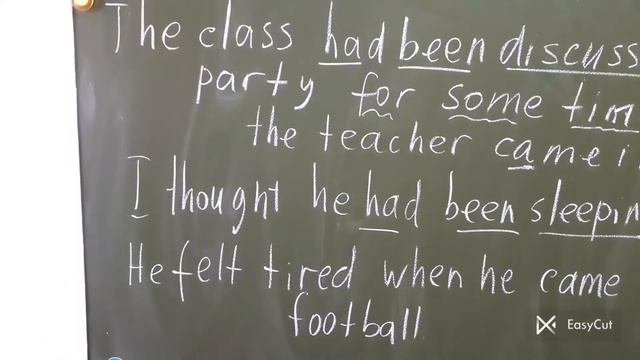 The class had been discuss
party for some tim
the teacher came i
I thought he had been sleepin
He felt tired when he came
football
EasyCut